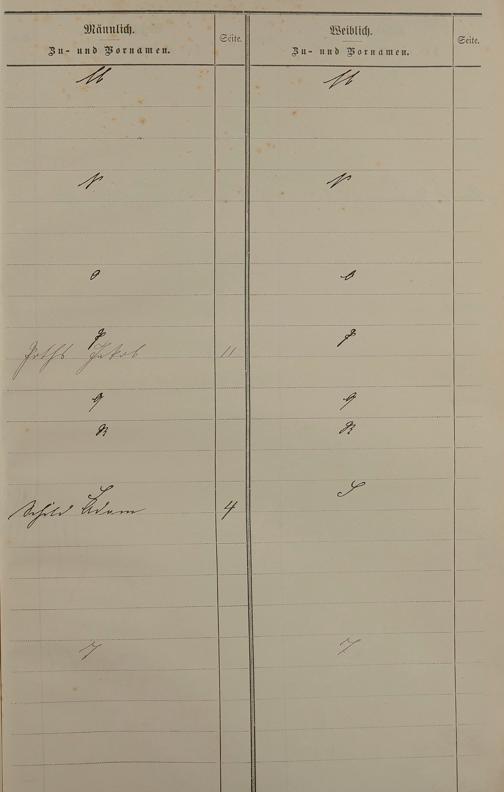 Männlich.
Zu- und Vornamen.
Seite.
Weiblich.
Zu- und Vornamen.
Seite.
M M
N N
O O
P P
Jakob 11
Q Q
R R
S S
Schild Adam 4
T T